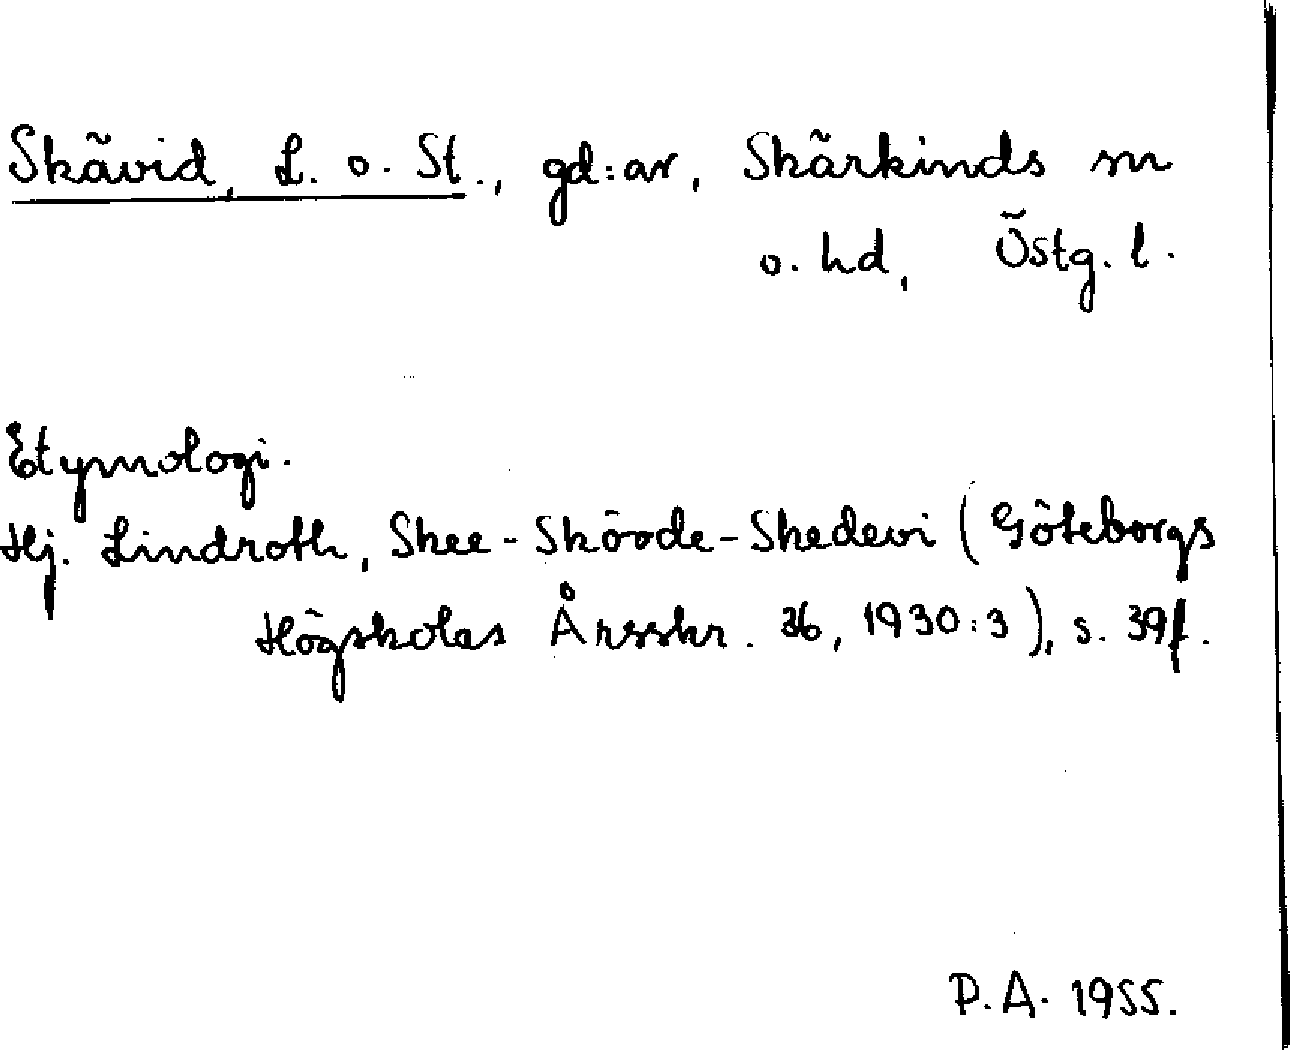 Skävid, L. o. St., gd:ar, Skärkinds sn
o. hd, Östg. l.
Etymologi.
Hj. Lindroth, Skee-Skövde-Skedevi (Göteborgs
Högskolas Årsskr. 36, 1930:3), s. 39f.
P.A. 1955.